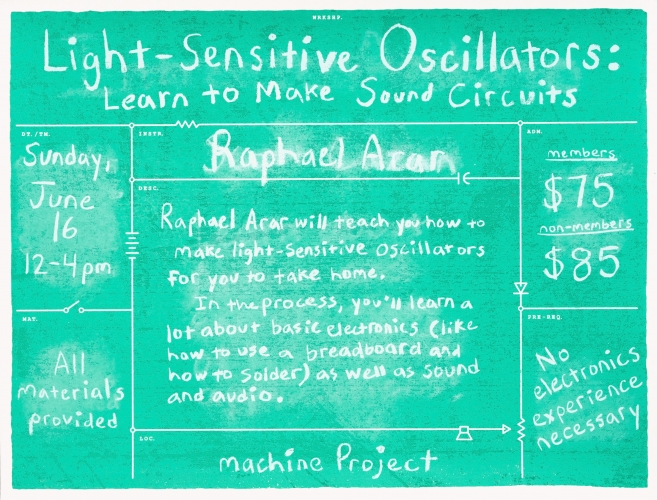 WRKSHP.
Light-Sensitive Oscillators:
Learn to Make Sound Circuits
DT./TM.
Sunday,
June
16
12-4pm
INSTR.
Raphael Arar
ADM.
members
$75
non-members
$85
DESC.
Raphael Arar will teach you how to
make light-sensitive oscillators
for you to take home.
In the process, you'll learn a
lot about basic electronics (like
how to use a breadboard and
how to solder) as well as sound
and audio.
MAT.
All
materials
provided
PRE-REQ.
No
electronics
experience
necessary
LOC.
machine Project